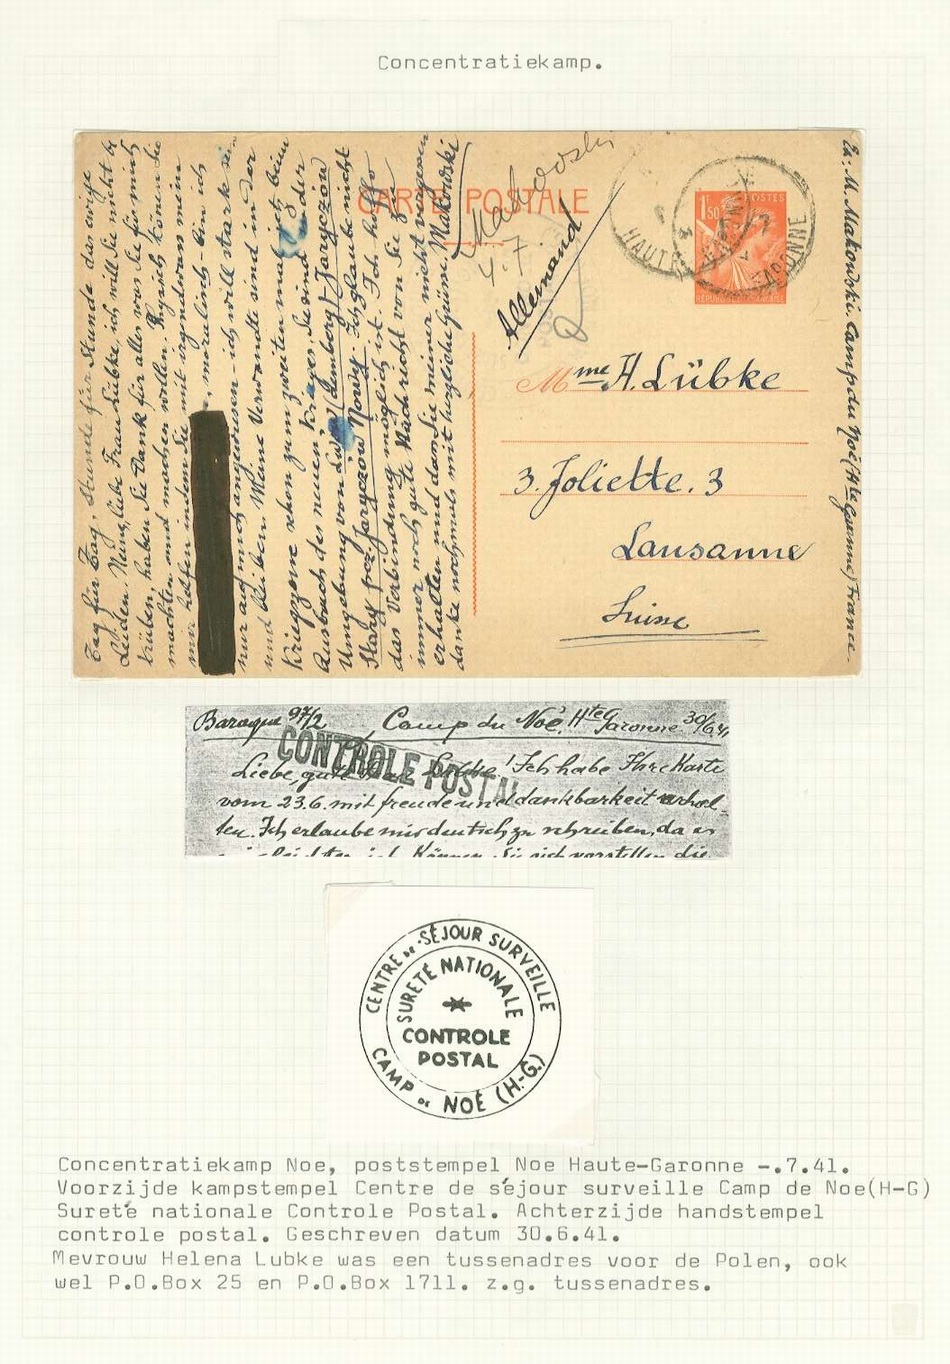 Concentratiekamp.
CARTE POSTALE
Makowski
4.7
Allemand
POSTES
1F50
HAUTE GARONNE
Mme H. Lübke
3. Joliette. 3
Lausanne
Suisse
M. Makowski. Camp du Noé (Hte Garonne) France.
Tag für Tag, Stunde für Stunde das ewige
Leiden. Nein, liebe Frau Lübke, ich will Sie nicht
trüben, haben Sie Dank für alles was Sie für mich
machten und machen wollen. Physisch können Sie
mir helfen indem Sie mit irgendwas mein
moralisch - bin ich
nur auf mich angewiesen - ich will stark sein
und bleiben. Meine Verwandte sind in der
Kriegszone schon zum zweiten mal seit beim
Ausbruch des neuen Krieges. Sie sind der
Umgebung von Lwów /Lemberg/ Jaryczów
Stary poz. Jaryczów Nowy. Ich glaube nicht
das Verbindung möglich ist. Ich hoffe
immer noch gute Nachricht von Sie zu
erhalten und dass Sie meiner nicht vergessen
danke nochmals mit herzliche Grüsse. Makowski
Baraque 97/2 Camp du Noé, Hte Garonne 30/6.41
CONTROLE POSTAL
Liebe, gute Frau Lübke! Ich habe Ihre Karte
vom 23.6. mit freude und dankbarkeit erhal-
ten. Ich erlaube mir deutsch zu schreiben, da es
Können Sie sich vorstellen die
CENTRE DE SÉJOUR SURVEILLE
SURETÉ NATIONALE
CONTROLE
POSTAL
CAMP DE NOÉ (H-G.)
Concentratiekamp Noe, poststempel Noe Haute-Garonne -.7.41.
Voorzijde kampstempel Centre de séjour surveille Camp de Noe(H-G)
Sureté nationale Controle Postal. Achterzijde handstempel
controle postal. Geschreven datum 30.6.41.
Mevrouw Helena Lubke was een tussenadres voor de Polen, ook
wel P.O.Box 25 en P.O.Box 1711. z.g. tussenadres.